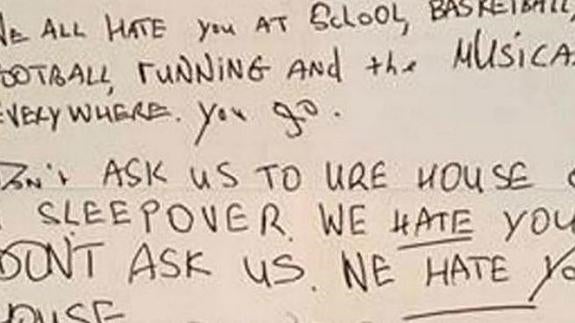 WE ALL HATE you AT SCLOOL, BASKETBALL,
OOTBALL, rUNNING AND the MUSICA
EVERYWHERE. you go.
DON't ASK US TO URE HOUSE
SLEEPOVER. WE HATE YOU
DONT ASK US. WE HATE YO
OUSE